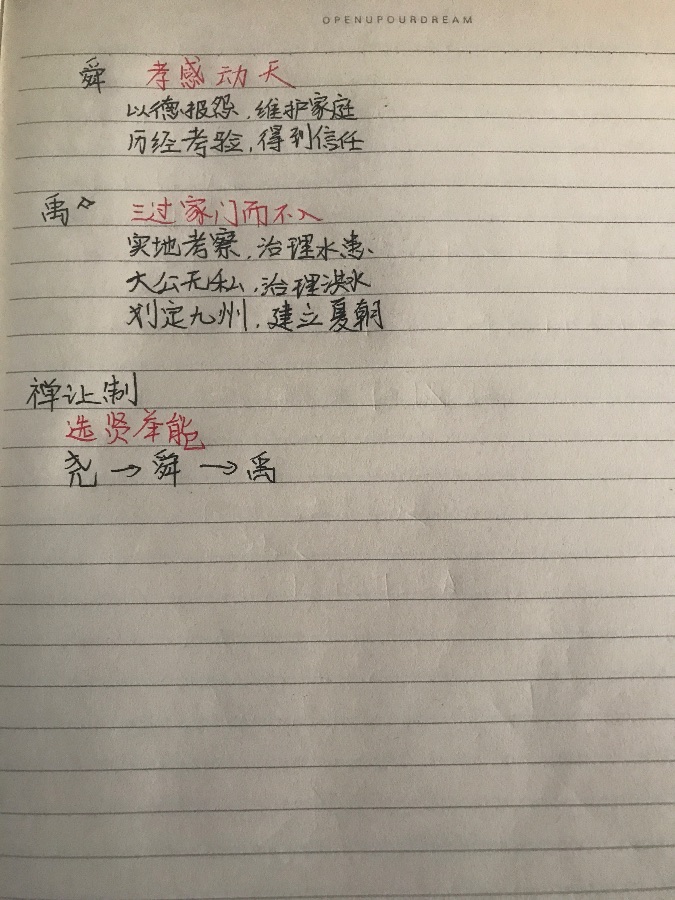 OPENUPOURDREAM
舜 孝感动天
以德报怨,维护家庭
历经考验,得到信任
禹 三过家门而不入
实地考察,治理水患、
大公无私,治理洪水
划定九州,建立夏朝
禅让制
选贤举能
尧→舜→禹